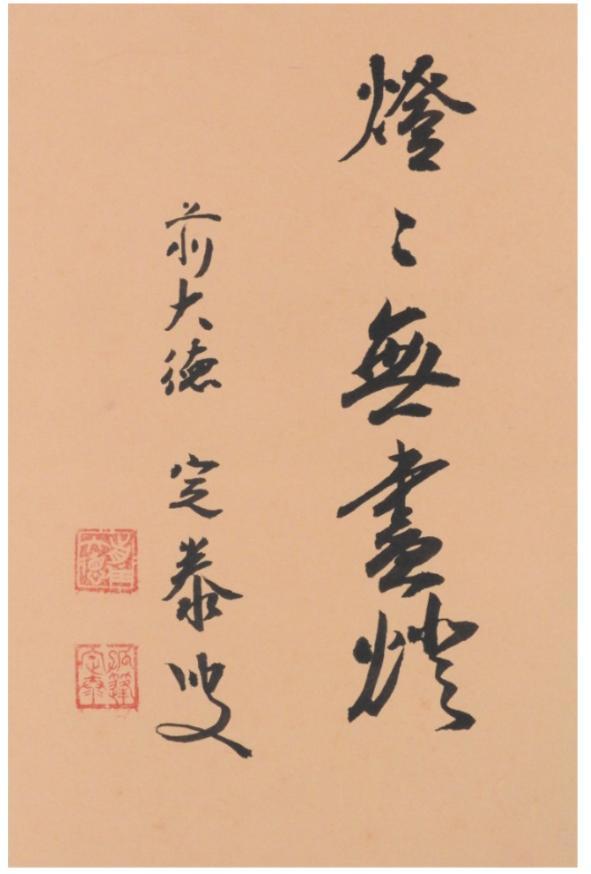 燈〻無盡燈
前大德 定泰叟